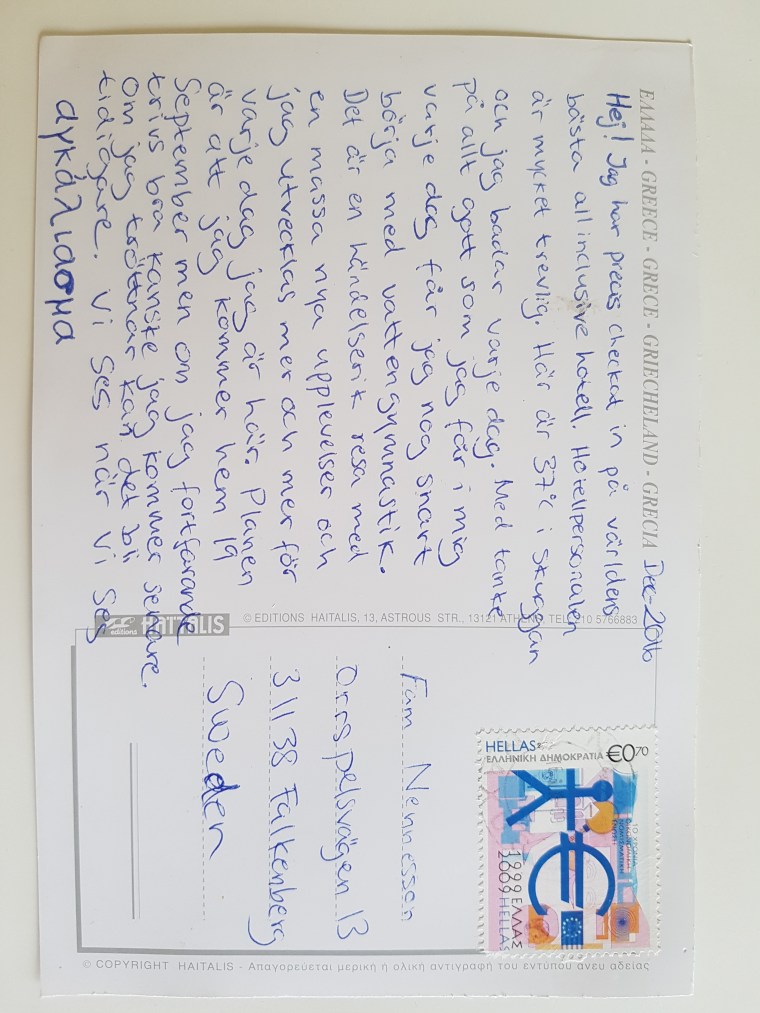 ΕΛΛΑΔΑ - GREECE - GRECE - GRIECHELAND - GRECIA
Dec-2016
Hej! Jag har precis checkat in på världens
bästa all inclusive hotell. Hotellpersonalen
är mycket trevlig. Här är 37°C i skuggan
och jag badar varje dag. Med tanke
på allt gott som jag får i mig
varje dag får jag nog snart
börja med vattengymnastik.
Det är en händelserik resa med
en massa nya upplevelser och
jag utvecklas mer och mer för
varje dag jag är här. Planen
är att jag kommer hem 19
September men om jag fortfarande
trivs bra kanske jag kommer senare.
Om jag tröttnar kan det bli
tidigare. Vi ses när vi ses
αγκάλιασμα
© EDITIONS HAITALIS, 13, ASTROUS STR., 13121 ATHENS, TEL. 210 5766883
editions HAITALIS
HELLAS
ΕΛΛΗΝΙΚΗ ΔΗΜΟΚΡΑΤΙΑ €0,70
10 ΧΡΟΝΙΑ
ΟΙΚΟΝΟΜΙΚΗ
ΝΟΜΙΣΜΑΤΙΚΗ
ΕΝΩΣΗ
1999 ΕΛΛΑΣ
2009 HELLAS
Fam Nennessen
Orrspelsvägen 13
311 38 Falkenberg
Sweden
© COPYRIGHT HAITALIS - Απαγορεύεται μερική ή ολική αντιγραφή του εντύπου άνευ αδείας